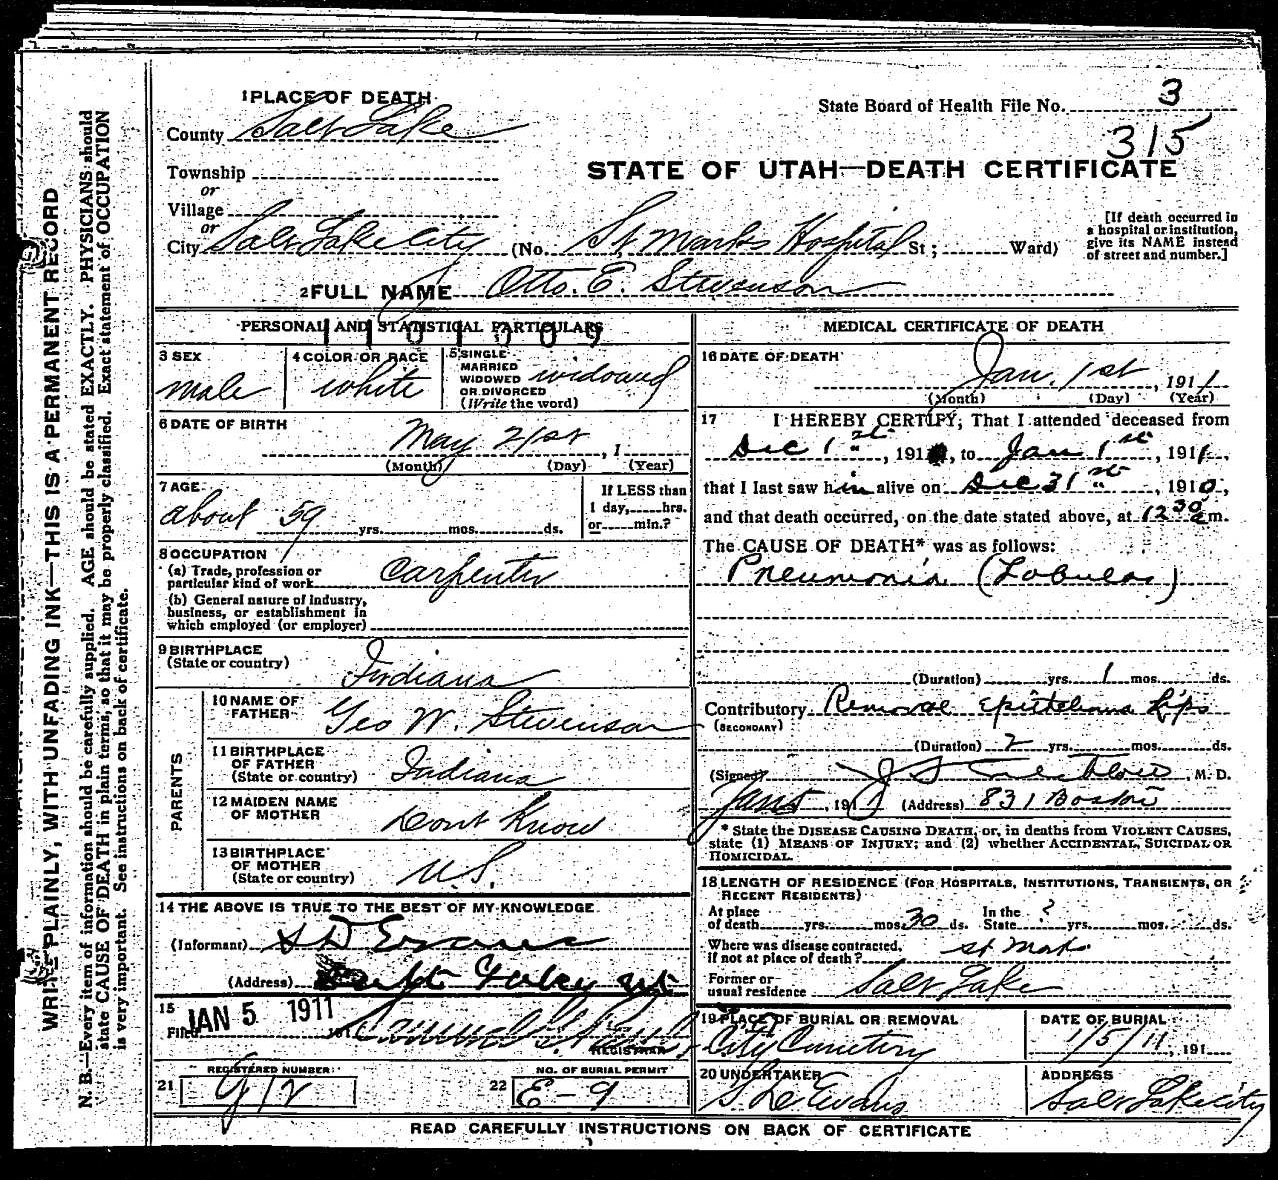 1 PLACE OF DEATH
State Board of Health File No. 3
County Salt Lake
315
STATE OF UTAH—DEATH CERTIFICATE
Township
or
Village
or
City Salt Lake City (No. St Marks Hospital St; Ward)
[If death occurred in a hospital or institution, give its NAME instead of street and number.]
2 FULL NAME Otto. E. Stevenson
PERSONAL AND STATISTICAL PARTICULARS
3 SEX
male
4 COLOR OR RACE
white
5 SINGLE
MARRIED
WIDOWED
OR DIVORCED
(Write the word)
widowed
6 DATE OF BIRTH
May 21st, 1
(Month) (Day) (Year)
7 AGE
about 59 yrs. mos. ds.
If LESS than
1 day, hrs.
or min.?
8 OCCUPATION
(a) Trade, profession or
particular kind of work Carpenter
(b) General nature of industry,
business, or establishment in
which employed (or employer)
9 BIRTHPLACE
(State or country)
Indiana
PARENTS
10 NAME OF
FATHER
Geo W. Stevenson
11 BIRTHPLACE
OF FATHER
(State or country)
Indiana
12 MAIDEN NAME
OF MOTHER
Dont Know
13 BIRTHPLACE
OF MOTHER
(State or country)
U.S.
14 THE ABOVE IS TRUE TO THE BEST OF MY KNOWLEDGE
(Informant) S D Evans
(Address) Salt Lake
15
Filed JAN 5 1911
REGISTRAR
21
REGISTERED NUMBER
22
NO. OF BURIAL PERMIT
E-9
MEDICAL CERTIFICATE OF DEATH
16 DATE OF DEATH
Jan. 1st, 1911
(Month) (Day) (Year)
17 I HEREBY CERTIFY, That I attended deceased from
Dec 1st, 191, to Jan 1st, 1911,
that I last saw him alive on Dec 31st, 1910,
and that death occurred, on the date stated above, at 12 30 a m.
The CAUSE OF DEATH* was as follows:
Pneumonia (Lobular)
(Duration) yrs. 1 mos. ds.
Contributory Removal epithelioma Lips
(SECONDARY)
(Duration) 2 yrs. mos. ds.
(Signed) M. D.
191 (Address) 831 Boston
* State the DISEASE CAUSING DEATH, or, in deaths from VIOLENT CAUSES,
state (1) MEANS OF INJURY; and (2) whether ACCIDENTAL, SUICIDAL OR
HOMICIDAL.
18 LENGTH OF RESIDENCE (FOR HOSPITALS, INSTITUTIONS, TRANSIENTS, OR
RECENT RESIDENTS)
At place
of death yrs. mos. 30 ds.
In the
State ? yrs. mos. ds.
Where was disease contracted,
if not at place of death? St Marks
Former or
usual residence Salt Lake
19 PLACE OF BURIAL OR REMOVAL
City Cemetery
DATE OF BURIAL
1/5/11, 191
20 UNDERTAKER
S D Evans
ADDRESS
Salt Lake City
READ CAREFULLY INSTRUCTIONS ON BACK OF CERTIFICATE
WRITE PLAINLY, WITH UNFADING INK—THIS IS A PERMANENT RECORD
N. B.—Every item of information should be carefully supplied. AGE should be stated EXACTLY. PHYSICIANS should
state CAUSE OF DEATH in plain terms, so that it may be properly classified. Exact statement of OCCUPATION
is very important. See instructions on back of certificate.